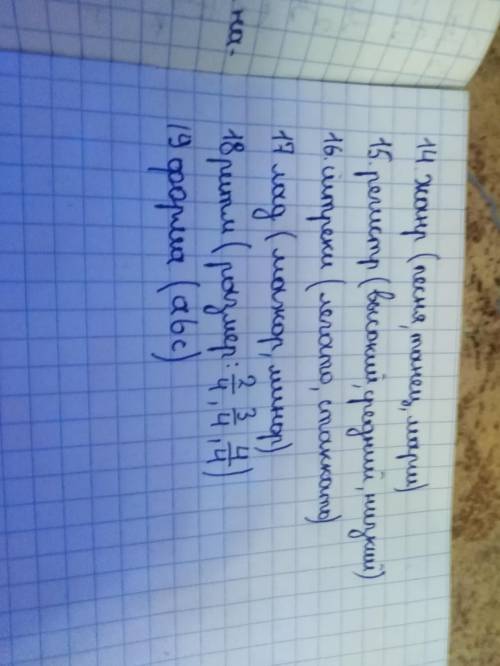 на.
14 жанр (песня, танец, марш)
15. регистр (высокий, средний, низкий)
16. штрихи (легато, стаккато)
17 лад (мажор, минор)
18 ритм (размер: 2/4, 3/4, 4/4)
19 форма (abc)